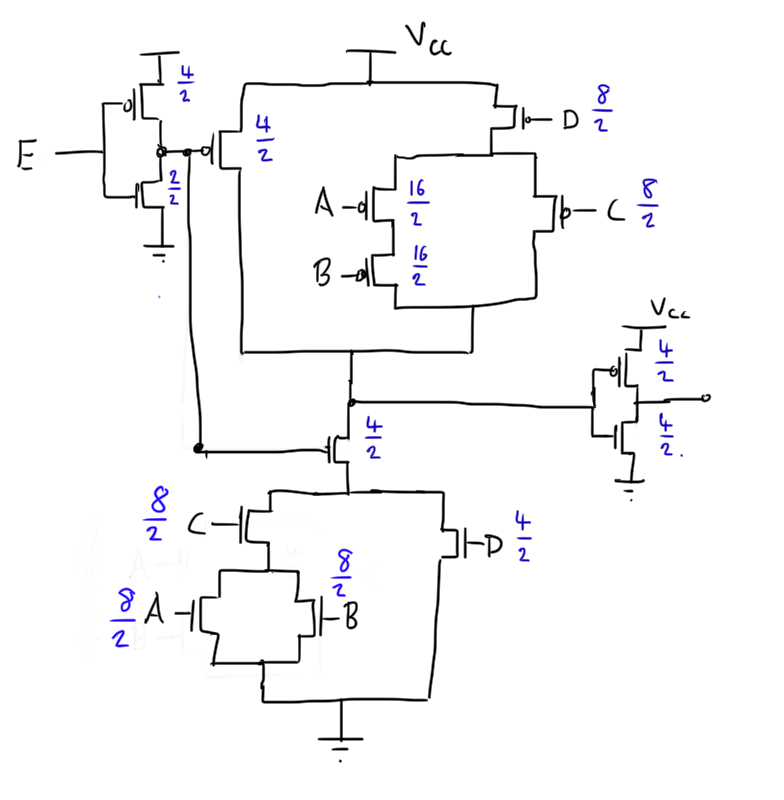 V CC
4/2
8/2
D
4/2
E
2/2
A
16/2
C
8/2
B
16/2
V CC
4/2
4/2
4/2.
8/2
C
D
4/2
8/2
8/2
A
B